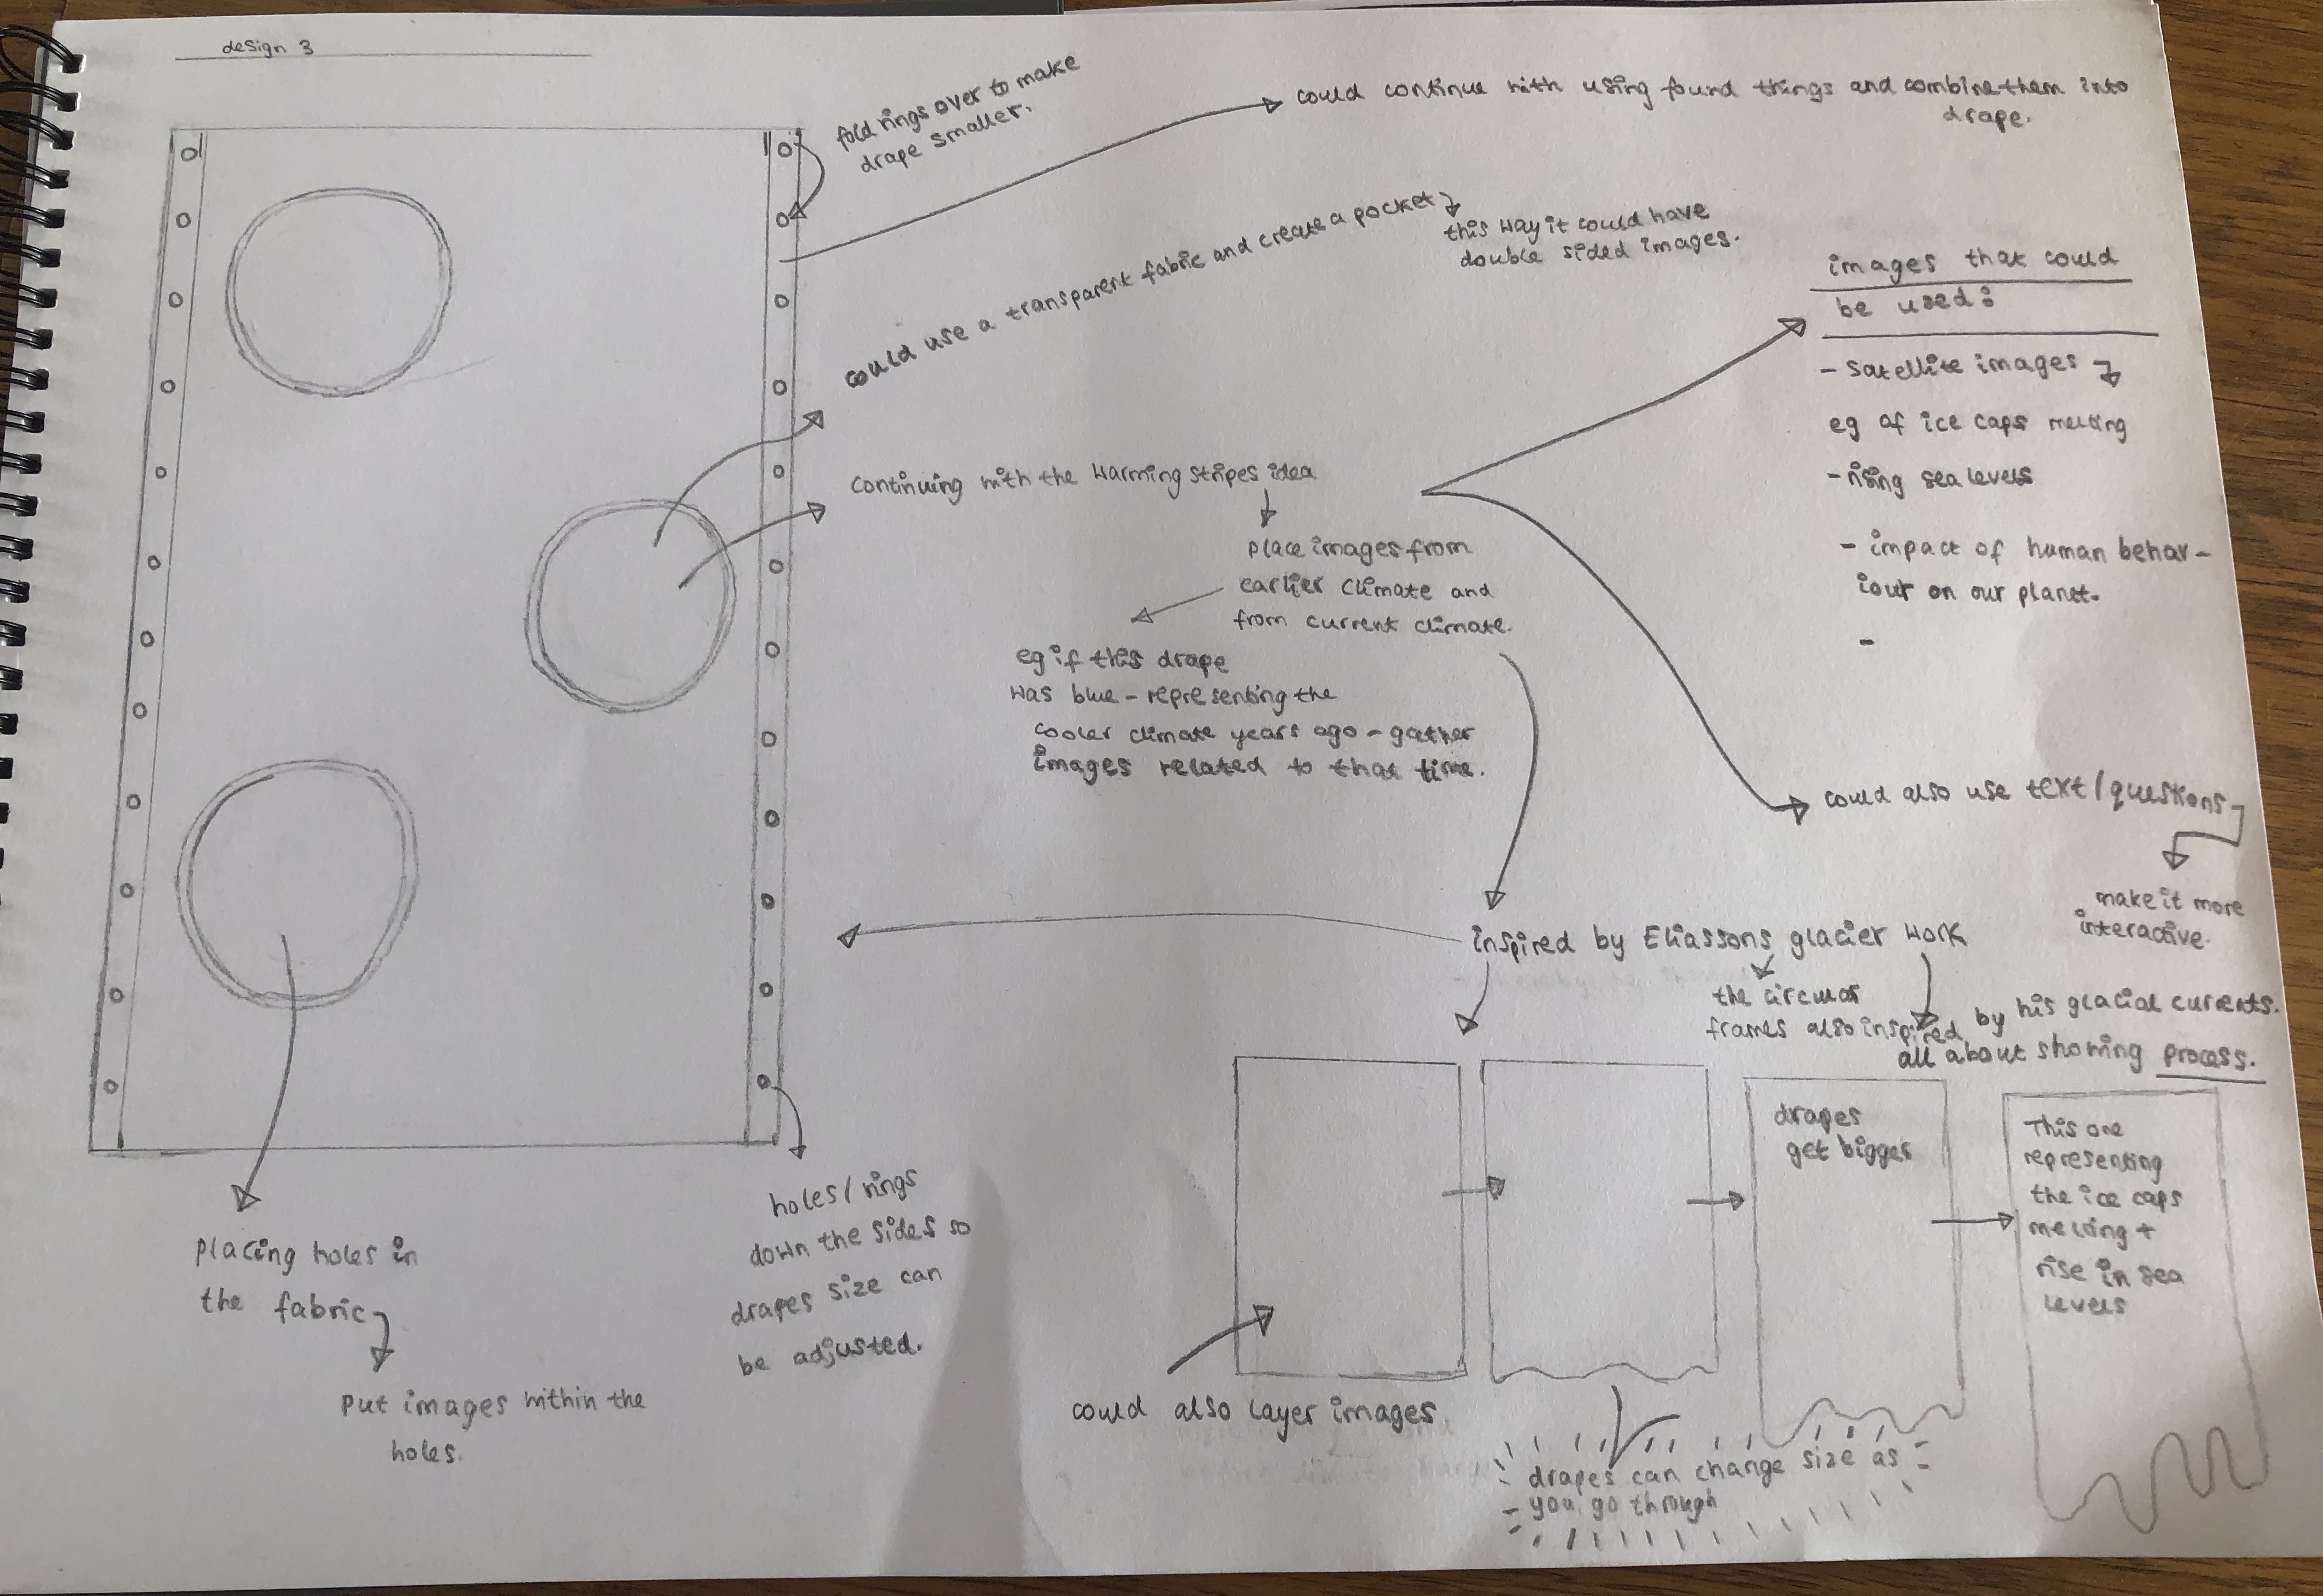 design 3
fold rings over to make
drape smaller.
could continue with using found things and combine them into
drape.
could use a transparent fabric and create a pocket
this way it could have
double sided images.
images that could
be used:
- satellite images
eg of ice caps melting
- rising sea levels
- impact of human behav-
iour on our planet.
-
continuing with the warming stripes idea
place images from
earlier climate and
from current climate.
eg if this drape
was blue - representing the
cooler climate years ago - gather
images related to that time.
could also use text/questions
make it more
interactive.
inspired by Eliassons glacier work
the circular
frames also inspired by his glacial currents.
all about showing process.
drapes
get bigger
This one
representing
the ice caps
melting +
rise in sea
levels
placing holes in
the fabric
put images within the
holes.
holes/rings
down the sides so
drapes size can
be adjusted.
could also layer images.
drapes can change size as
you go through